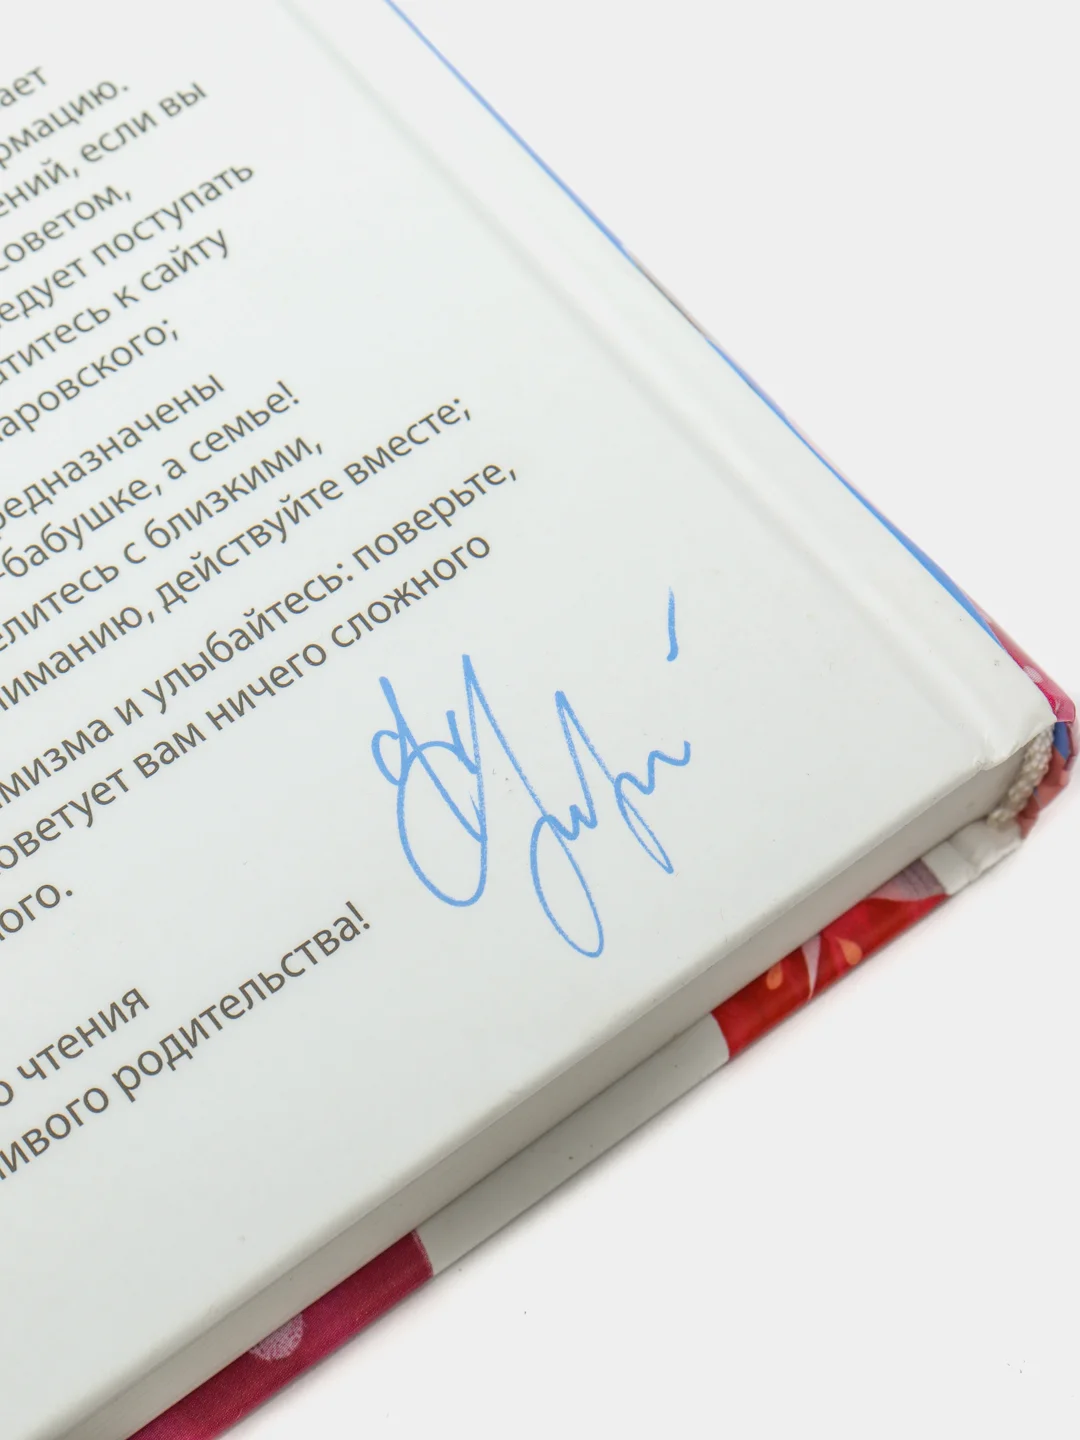 ает
рмацию.
ений, если вы
советом,
едует поступать
атитесь к сайту
аровского;
редназначены
-бабушке, а семье!
елитесь с близкими,
ниманию, действуйте вместе;
мизма и улыбайтесь: поверьте,
оветует вам ничего сложного
ого.
о чтения
ливого родительства!